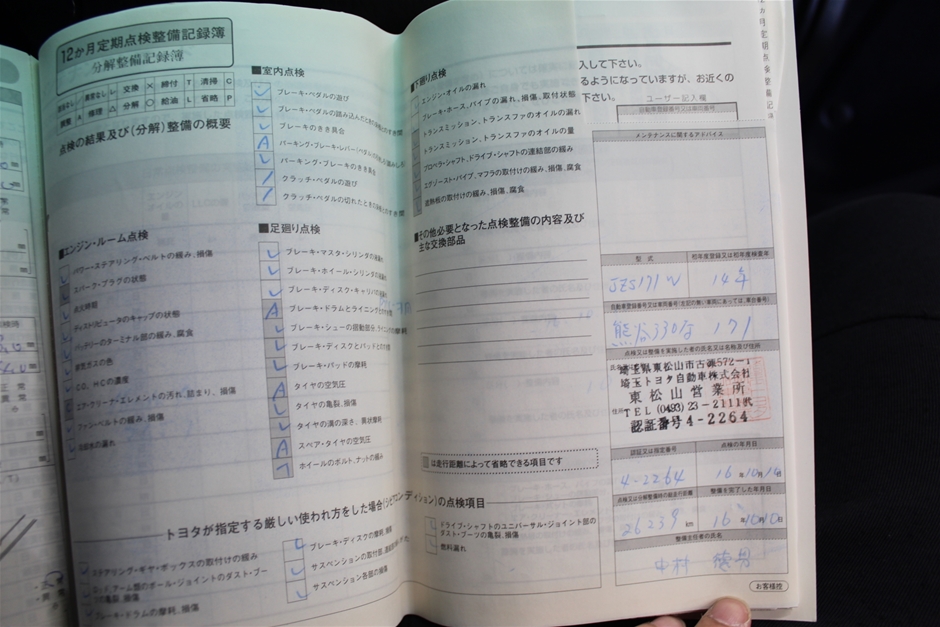 12か月定期点検整備記録簿
分解整備記録簿
交換 × 締付 T 清掃 C
調整 A 修理 △ 分解 ○ 給油 L 省略 P
点検の結果及び(分解)整備の概要
■エンジン・ルーム点検
パワー・ステアリング・ベルトの緩み、損傷
スパーク・プラグの状態
点火時期
ディストリビュータのキャップの状態
バッテリーのターミナル部の緩み、腐食
排気ガスの色
CO、HCの濃度
エア・クリーナ・エレメントの汚れ、詰まり、損傷
ファン・ベルトの緩み、損傷
冷却水の漏れ
■室内点検
ブレーキ・ペダルの遊び
ブレーキ・ペダルの踏み込んだ
ブレーキのきき具合
A パーキング・ブレーキ・レバー
パーキング・ブレーキのきき具合
クラッチ・ペダルの遊び
クラッチ・ペダルの切れたとき
■足廻り点検
ブレーキ・マスタ・シリンダの
ブレーキ・ホイール・シリンダの
ブレーキ・ディスク・キャリパの
A ブレーキ・ドラムとライニング
ブレーキ・シューの摺動部分、ライニングの摩耗
ブレーキ・ディスクとパッド
ブレーキ・パッドの摩耗
A タイヤの空気圧
タイヤの亀裂、損傷
タイヤの溝の深さ、異状摩耗
A スペア・タイヤの空気圧
T ホイールのボルト、ナットの緩み
■下廻り点検
エンジン・オイルの漏れ
ブレーキ・ホース、パイプの漏れ、損傷、取付状態
トランスミッション、トランスファのオイルの漏れ
トランスミッション、トランスファのオイルの量
プロペラ・シャフト、ドライブ・シャフトの連結部の緩み
エグゾースト・パイプ、マフラの取付けの緩み、損傷、腐食
遮熱板の取付けの緩み、損傷、腐食
■その他必要となった点検整備の内容及び
主な交換部品
は走行距離によって省略できる項目です
トヨタが指定する厳しい使われ方をした場合(シビアコンディション)の点検項目
ステアリング・ギヤ・ボックスの取付けの緩み
ロッド、アーム類のボール・ジョイントのダスト・ブー
ツの亀裂、損傷
ブレーキ・ドラムの摩耗、損傷
ブレーキ・ディスクの摩耗、損傷
サスペンションの取付部、連結部
サスペンション各部の損傷
ドライブ・シャフトのユニバーサル・ジョイント部の
ダスト・ブーツの亀裂、損傷
燃料漏れ
入して下さい。
るようになっていますが、お近くの
下さい。
ユーザー記入欄
メンテナンスに関するアドバイス
型式
初年度登録又は初年度検査年
JZS171W
14年
熊谷330な 171
点検又は整備を実施した者の氏名又は名称及び住所
埼玉県東松山市古凍572-1
埼玉トヨタ自動車株式会社
東松山営業所
TEL (0493) 23-2111㈹
認証番号4-2264
認証又は指定番号
点検の年月日
4-2264
16年10月10日
点検又は分解整備時の総走行距離
整備を完了した年月日
26239 km
16年10月10日
整備主任者の氏名
お客様控